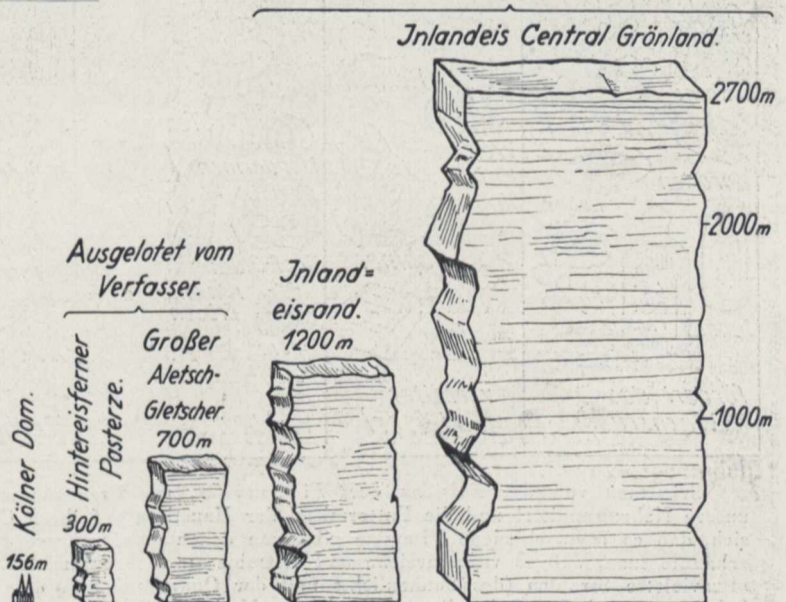 Jnlandeis Central Grönland.
2700m
2000m
1000m
Ausgelotet vom
Verfasser.
Jnland=
eisrand.
1200m
Großer
Aletsch-
Gletscher.
700m
Hintereisferner
Pasterze.
300m
Kölner Dom.
156m